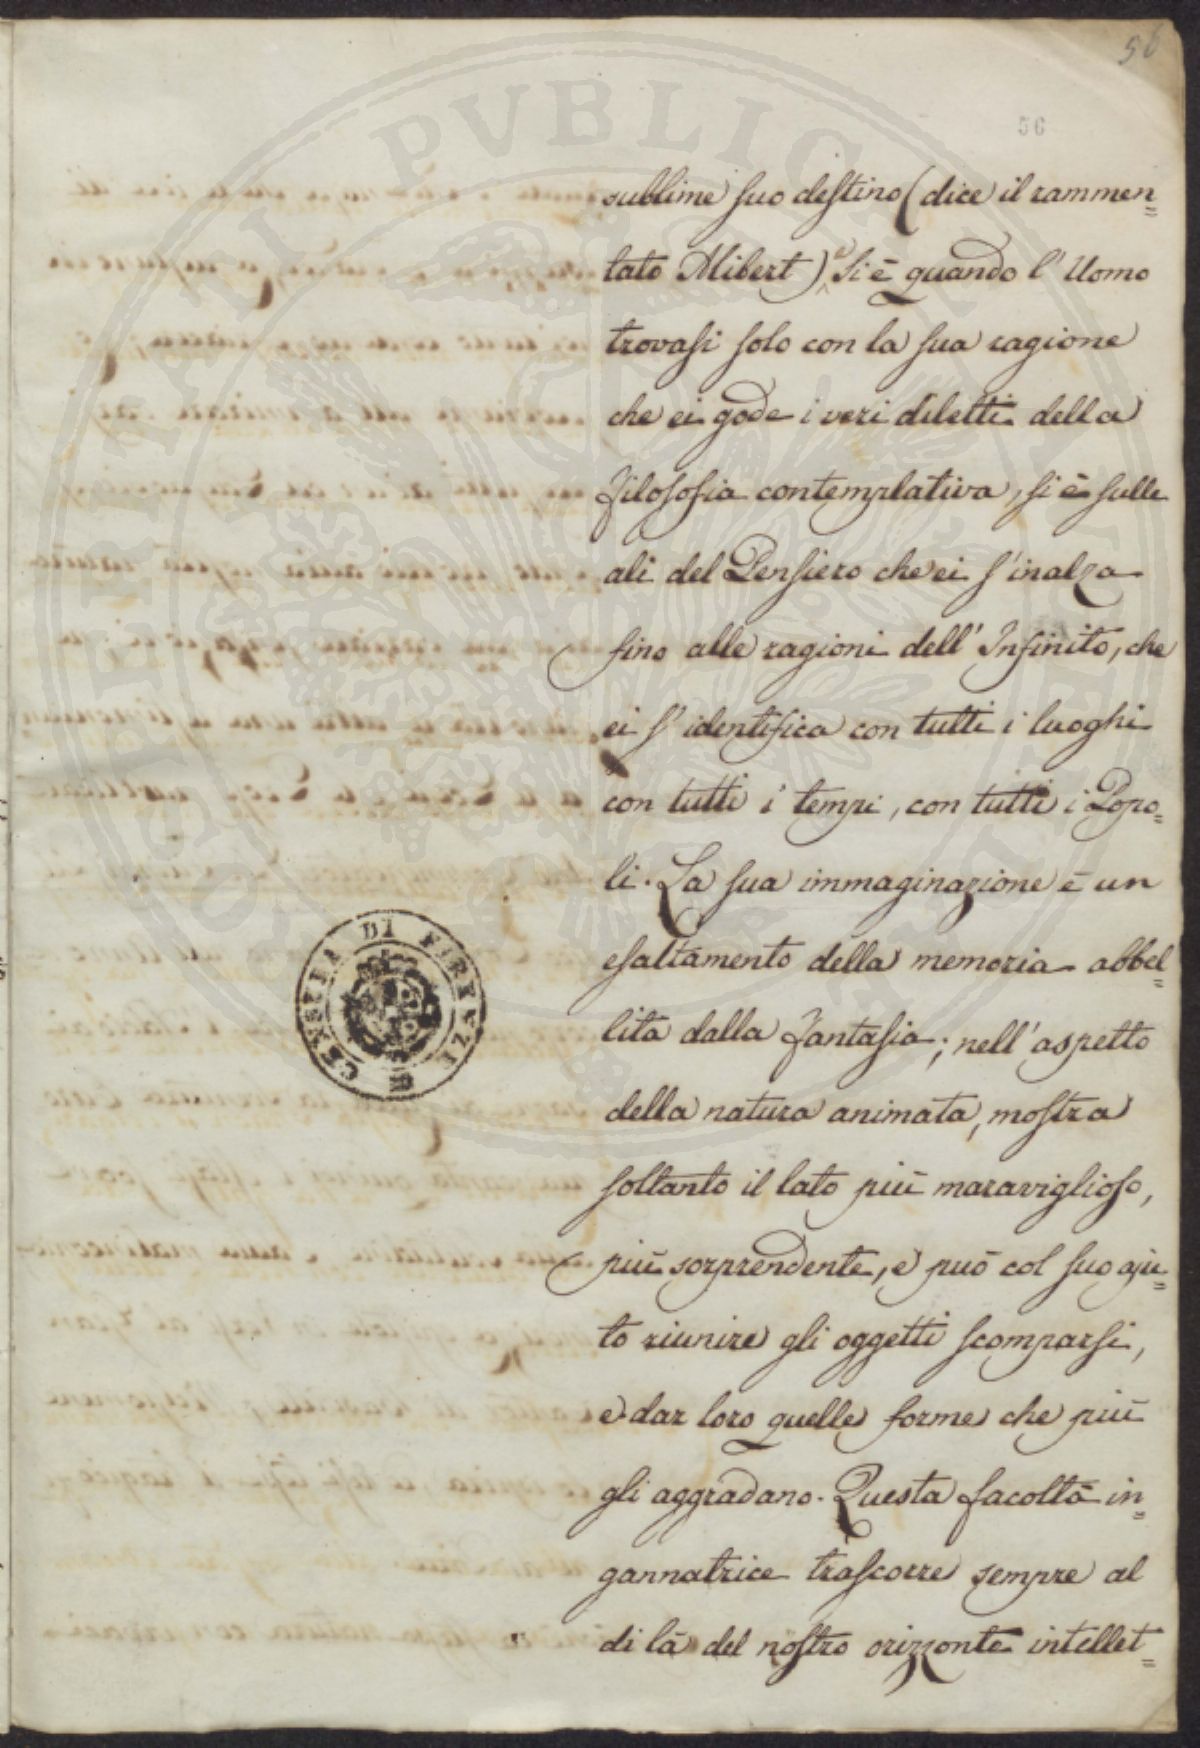 56
56
sublime suo destino (dice il rammen=
tato Alibert) si è quando l'Uomo
trovasi solo con la sua ragione
che ei gode i veri diletti della
filosofia contemplativa, si è sulle
ali del Pensiero che ei s'inalza
fino alle ragioni dell'Infinito, che
ei s'identifica con tutti i luoghi
con tutti i tempi, con tutti i Popo=
li. La sua immaginazione è un
esaltamento della memoria abbel=
lita dalla fantasia; nell'aspetto
della natura animata, mostra
soltanto il lato più maraviglioso,
più sorprendente, e può col suo aju=
to riunire gli oggetti scomparsi,
e dar loro quelle forme che più
gli aggradano. Questa facoltà in=
gannatrice trascorre sempre al
di là del nostro orizzonte intellet=
CENSURA DI FIRENZE